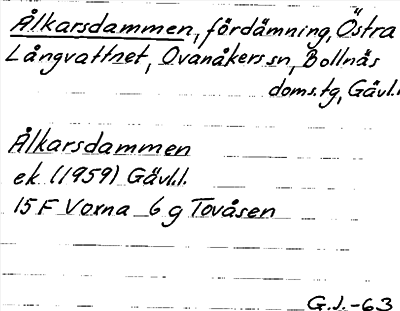 Ålkarsdammen, fördämning, Östra
Långvattnet, Ovanåkers sn, Bollnäs
doms.tg, Gävl.l
Ålkarsdammen
ek. (1959) Gävl.l.
15 F Voxna 6 g Tovåsen
G.J.-63